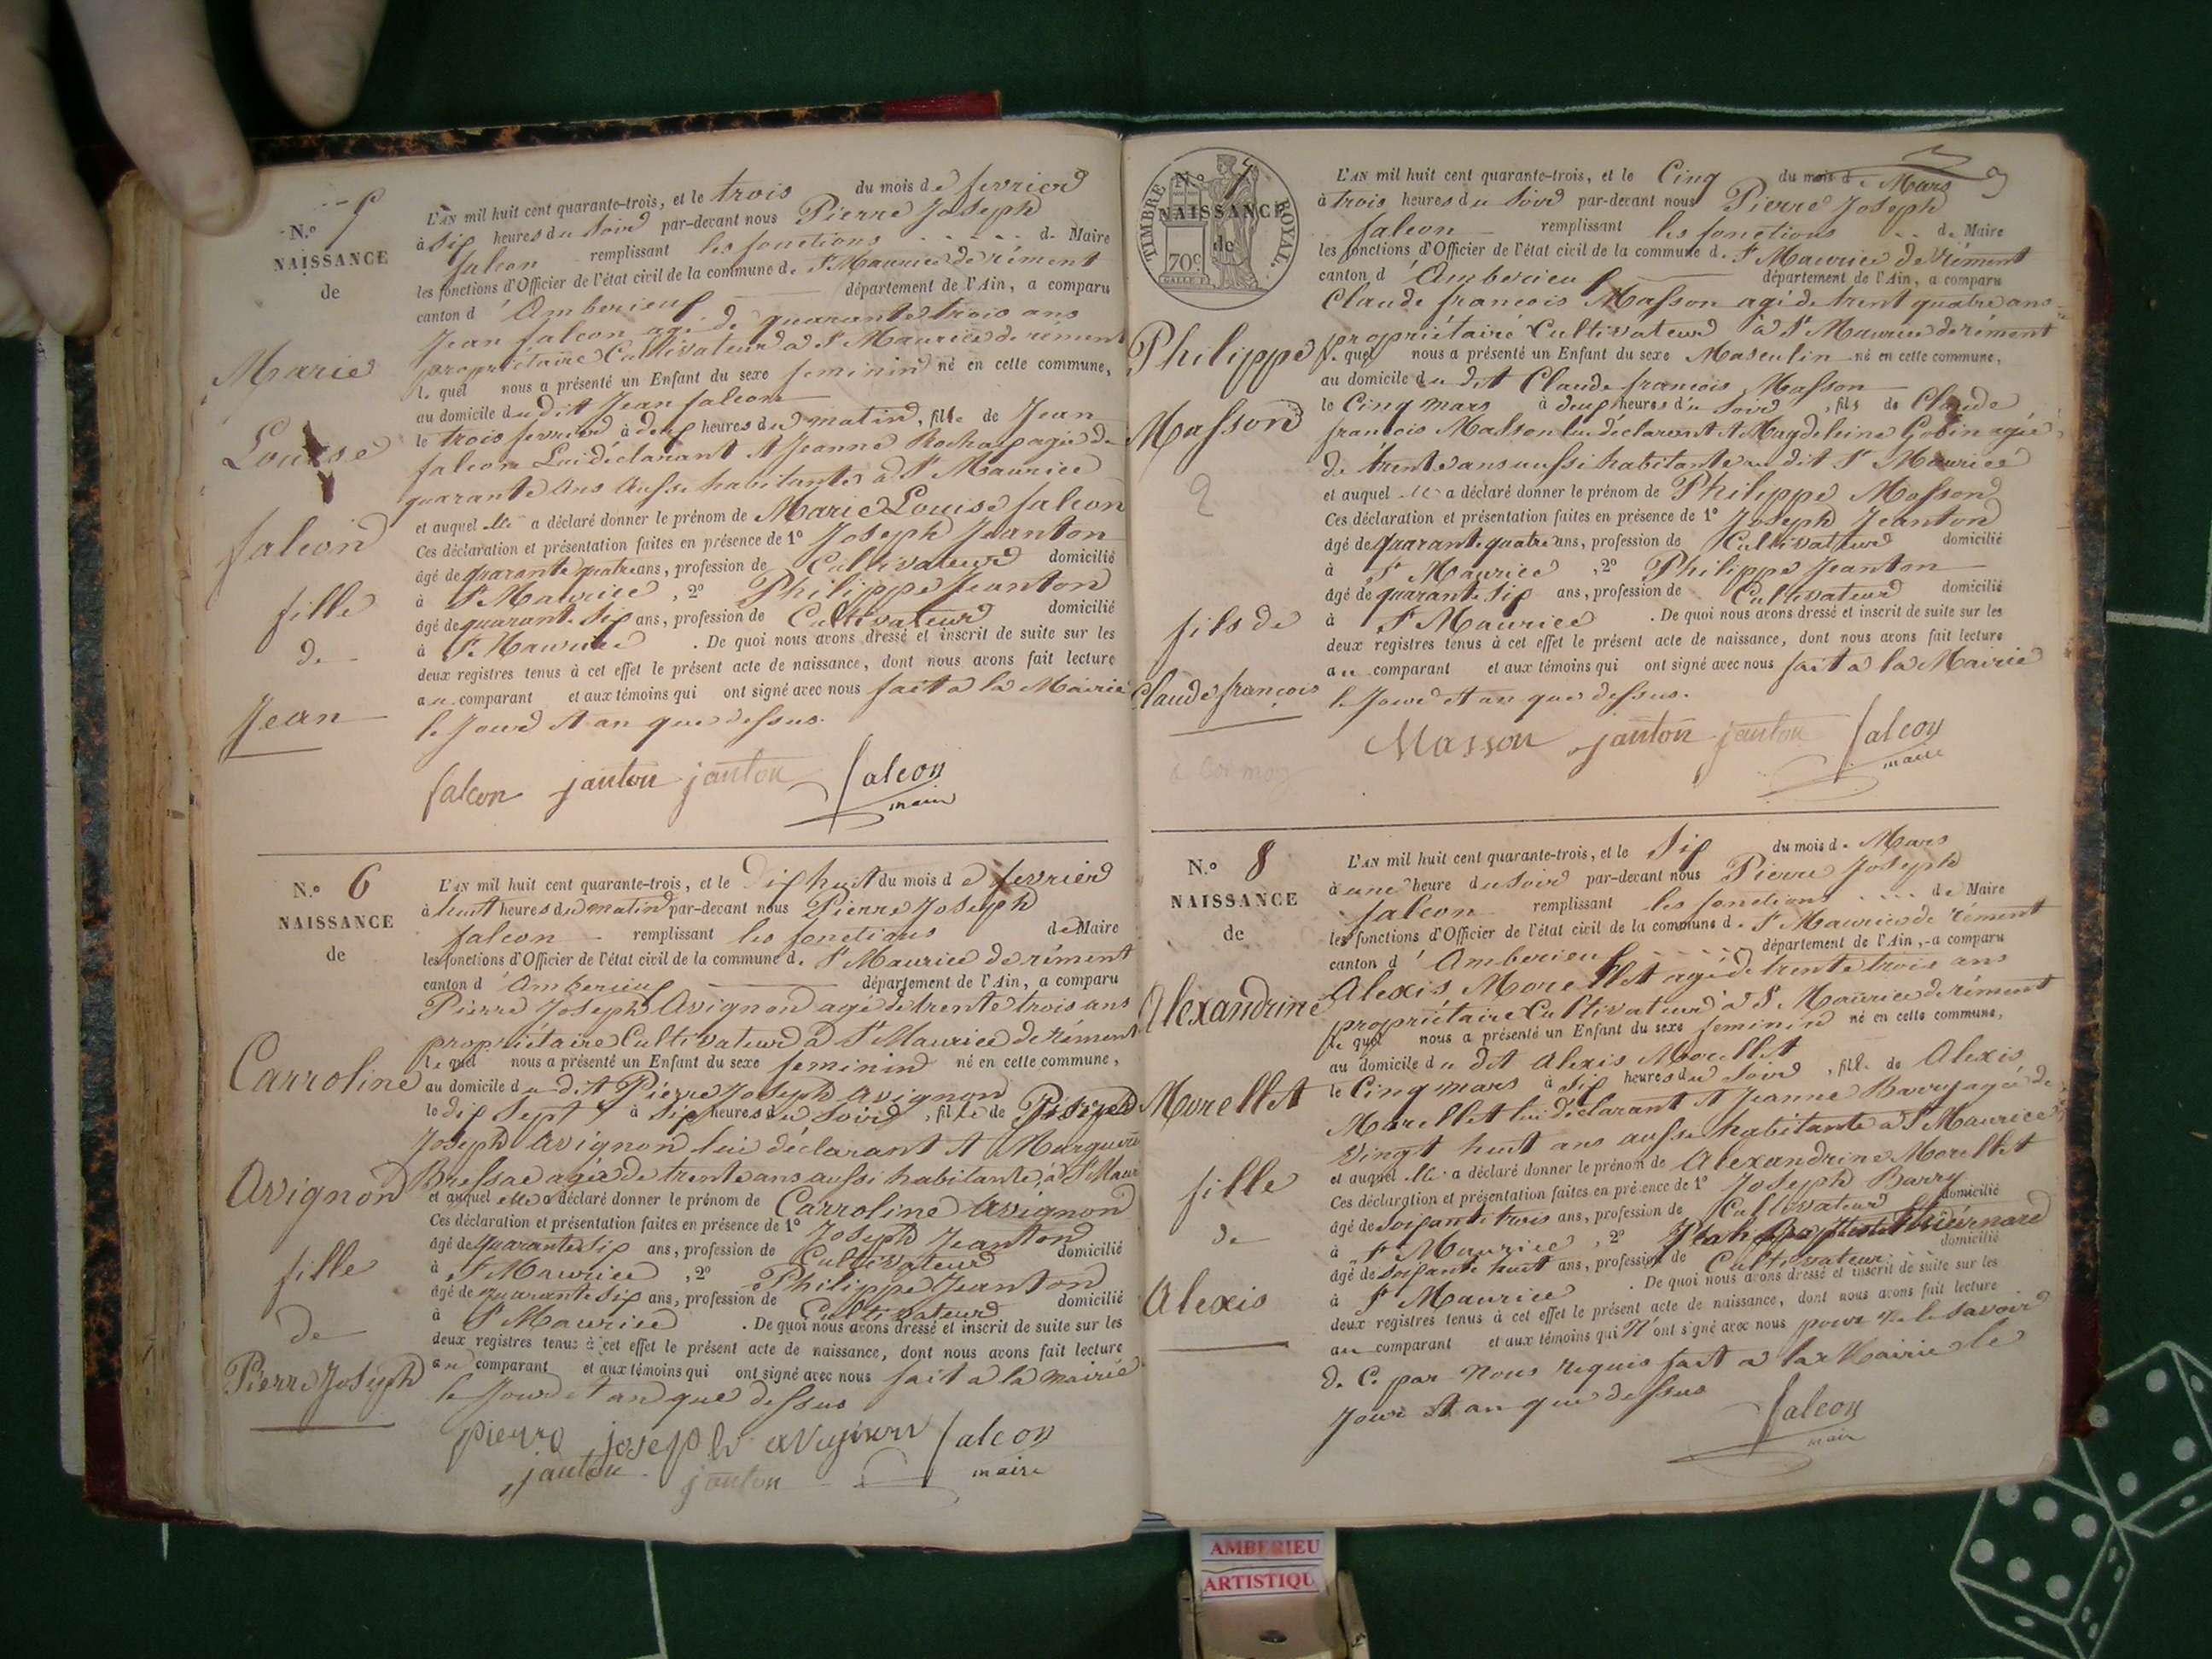 N.o 5
NAISSANCE
de
Marie
Louise
falcon
fille
de
Jean
L'AN mil huit cent quarante-trois, et le trois du mois de fevrier
à six heures du soir par-devant nous Pierre Joseph
falcon remplissant les fonctions de Maire
les fonctions d'Officier de l'état civil de la commune de St Maurice de rément
canton d'Amberieux département de l'Ain, a comparu
Jean falcon agé de quarante trois ans
propriétaire Cultivateur à St Maurice de rément
lequel nous a présenté un Enfant du sexe feminin né en cette commune,
au domicile du dit Jean falcon
le trois fevrier à deux heures du matin, fille de Jean
falcon Lui déclarant et Jeanne agée de
quarante ans aussi habitante à St Maurice
et auquel elle a déclaré donner le prénom de Marie Louise falcon
Ces déclaration et présentation faites en présence de 1o Joseph Jeanton
âgé de quarante quatre ans, profession de Cultivateur domicilié
à St Maurice, 2o Philippe Jeanton
âgé de quarante six ans, profession de Cultivateur domicilié
à St Maurice. De quoi nous avons dressé et inscrit de suite sur les
deux registres tenus à cet effet le présent acte de naissance, dont nous avons fait lecture
au comparant et aux témoins qui ont signé avec nous fait à la Mairie
le Jour et an que dessus.
falcon janton janton falcon
maire
N.o 6
NAISSANCE
de
Carroline
Avignon
fille
de
Pierre Joseph
L'AN mil huit cent quarante-trois, et le Dix huit du mois de fevrier
à huit heures du matin par-devant nous Pierre Joseph
falcon remplissant les fonctions de Maire
les fonctions d'Officier de l'état civil de la commune de St Maurice de rément
canton d'Amberieux département de l'Ain, a comparu
Pierre Joseph Avignon agé de trente trois ans
propriétaire Cultivateur à St Maurice de rément
lequel nous a présenté un Enfant du sexe feminin né en cette commune,
au domicile du dit Pierre Joseph Avignon
le dix sept à six heures du soir, fille de Pierre
Joseph Avignon lui déclarant et
Bressac agée de trente ans aussi habitante à St Maur
et auquel elle a déclaré donner le prénom de Carroline Avignon
Ces déclaration et présentation faites en présence de 1o Joseph Jeanton
âgé de quarante six ans, profession de Cultivateur domicilié
à St Maurice, 2o Philippe Jeanton
âgé de quarante six ans, profession de Cultivateur domicilié
à St Maurice. De quoi nous avons dressé et inscrit de suite sur les
deux registres tenus à cet effet le présent acte de naissance, dont nous avons fait lecture
au comparant et aux témoins qui ont signé avec nous fait à la mairie
le Jour et an que dessus
pierre joseph avignon falcon
janton janton maire
TIMBRE ROYAL.
70c
N.o 7
NAISSANCE
de
Philippe
Masson
2
fils de
Claude francois
L'AN mil huit cent quarante-trois, et le Cinq du mois de Mars
à trois heures du soir par-devant nous Pierre Joseph
falcon remplissant les fonctions de Maire
les fonctions d'Officier de l'état civil de la commune de St Maurice de rément
canton d'Amberieux département de l'Ain, a comparu
Claude francois Masson agé de trent quatre ans
propriétaire Cultivateur à St Maurice de rément
lequel nous a présenté un Enfant du sexe Masculin né en cette commune,
au domicile du dit Claude francois Masson
le Cinq mars à deux heures du soir, fils de Claude
francois Masson lui déclarant et Magdeleine Godin agée
de trente ans aussi habitante au dit St Maurice
et auquel a déclaré donner le prénom de Philippe Masson
Ces déclaration et présentation faites en présence de 1o Joseph Jeanton
âgé de quarante quatre ans, profession de Cultivateur domicilié
à St Maurice, 2o Philippe Jeanton
âgé de quarante six ans, profession de Cultivateur domicilié
à St Maurice. De quoi nous avons dressé et inscrit de suite sur les
deux registres tenus à cet effet le présent acte de naissance, dont nous avons fait lecture
au comparant et aux témoins qui ont signé avec nous fait à la Mairie
le Jour et an que dessus.
Masson janton janton falcon
maire
N.o 8
NAISSANCE
de
Alexandrine
Morellet
fille
de
Alexis
L'AN mil huit cent quarante-trois, et le six du mois de Mars
à une heure du soir par-devant nous Pierre Joseph
falcon remplissant les fonctions de Maire
les fonctions d'Officier de l'état civil de la commune de St Maurice de rément
canton d'Amberieux département de l'Ain, a comparu
Alexis Morellet agé de trente trois ans
propriétaire Cultivateur à St Maurice de rément
lequel nous a présenté un Enfant du sexe feminin né en cette commune,
au domicile du dit Alexis Morellet
le Cinq mars à six heures du soir, fille de Alexis
Morellet lui déclarant et Jeanne Barry agée de
vingt huit ans aussi habitante à St Maurice
et auquel elle a déclaré donner le prénom de Alexandrine Morellet
Ces déclaration et présentation faites en présence de 1o Joseph Barry
âgé de soixante trois ans, profession de Cultivateur domicilié
à St Maurice, 2o Jean Baptiste
âgé de soixante huit ans, profession de Cultivateur domicilié
à St Maurice. De quoi nous avons dressé et inscrit de suite sur les
deux registres tenus à cet effet le présent acte de naissance, dont nous avons fait lecture
au comparant et aux témoins qui N'ont signé avec nous pour ne le savoir
de ce par nous requis fait à la Mairie le
Jour et an que dessus
falcon
maire
AMBERIEU
ARTISTIQU